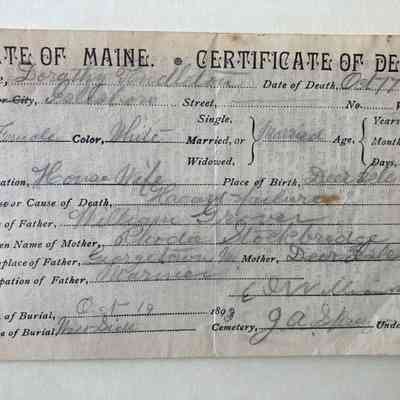 ATE OF MAINE. • CERTIFICATE OF DE
e, Dorothy Pendleton Date of Death, Oct 17
or City, Street, No. W
Female Color, White Single, Married, or Widowed, Married Age: Years Month Days,
ation, House Wife Place of Birth, Deer Isle
se or Cause of Death, Heart failure
e of Father, William Grover
en Name of Mother, Stockbridge
hplace of Father, Georgetown Mother, Deer Isle
pation of Father, Mariner
of Burial, Oct 19 1898
e of Burial, West Side Cemetery, J A Unde